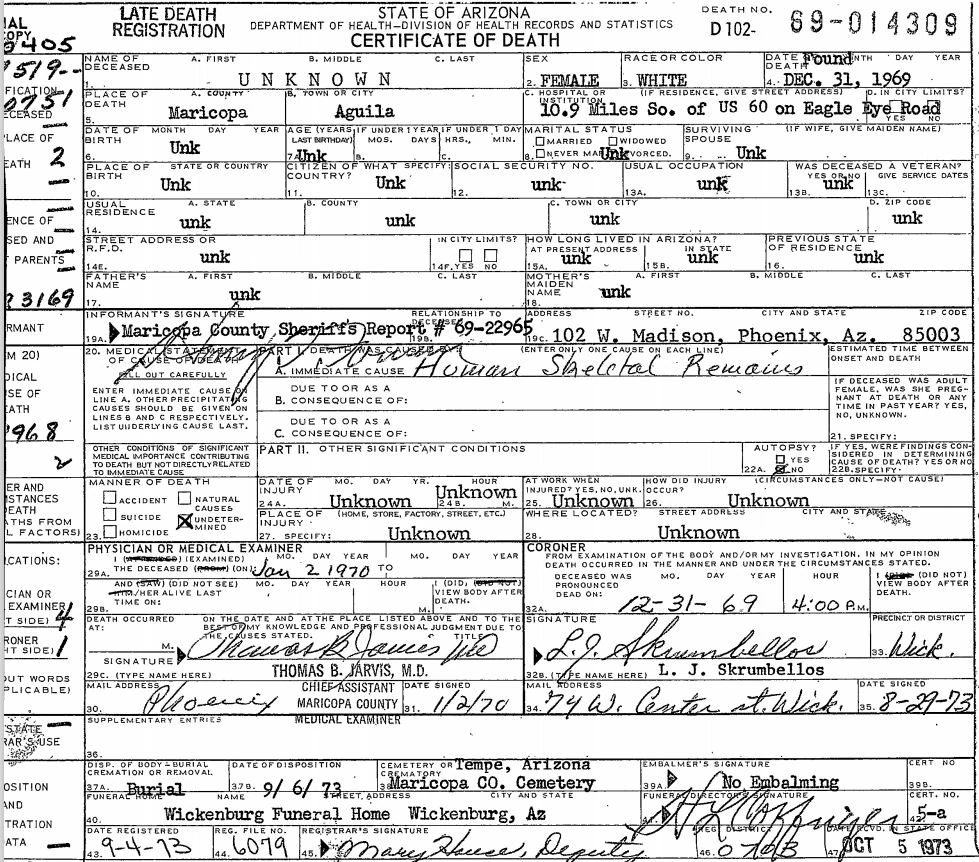 LATE DEATH REGISTRATION
STATE OF ARIZONA
DEPARTMENT OF HEALTH-DIVISION OF HEALTH RECORDS AND STATISTICS
CERTIFICATE OF DEATH
DEATH NO.
D 102- 69-014309
COPY
0405
NAME OF DECEASED A. FIRST B. MIDDLE C. LAST
1. UNKNOWN
SEX
2. FEMALE
RACE OR COLOR
3. WHITE
DATE OF DEATH Found MONTH DAY YEAR
4. DEC. 31, 1969
PLACE OF DEATH
5.
A. COUNTY
Maricopa
B. TOWN OR CITY
Aguila
C. HOSPITAL OR INSTITUTION (IF RESIDENCE, GIVE STREET ADDRESS)
10.9 Miles So. of US 60 on Eagle Eye Road
D. IN CITY LIMITS?
YES NO
DATE OF BIRTH MONTH DAY YEAR
6. Unk
AGE (YEARS LAST BIRTHDAY)
7A. Unk
IF UNDER 1 YEAR MOS. DAYS
B.
IF UNDER 1 DAY HRS. MIN.
C.
MARITAL STATUS
8. MARRIED WIDOWED
NEVER MAR Unk VORCED.
SURVIVING SPOUSE (IF WIFE, GIVE MAIDEN NAME)
9. Unk
PLACE OF BIRTH STATE OR COUNTRY
10. Unk
CITIZEN OF WHAT COUNTRY? SPECIFY
11. Unk
SOCIAL SECURITY NO.
12. unk
USUAL OCCUPATION
13A. unk
WAS DECEASED A VETERAN?
YES OR NO GIVE SERVICE DATES
13B. unk 13C.
USUAL RESIDENCE
14.
A. STATE
unk
B. COUNTY
unk
C. TOWN OR CITY
unk
D. ZIP CODE
unk
STREET ADDRESS OR R.F.D.
14E. unk
IN CITY LIMITS?
14F. YES NO
HOW LONG LIVED IN ARIZONA?
AT PRESENT ADDRESS IN STATE
15A. unk 15B. unk
PREVIOUS STATE OF RESIDENCE
16. unk
FATHER'S NAME A. FIRST B. MIDDLE C. LAST
17. unk
MOTHER'S MAIDEN NAME A. FIRST B. MIDDLE C. LAST
18. unk
INFORMANT'S SIGNATURE RELATIONSHIP TO DECEASED
19A. Maricopa County Sheriff's Report # 69-22965
19B.
ADDRESS STREET NO. CITY AND STATE ZIP CODE
19C. 102 W. Madison, Phoenix, Az. 85003
20. MEDICAL STATEMENT OF CAUSE OF DEATH
FILL OUT CAREFULLY
ENTER IMMEDIATE CAUSE ON LINE A. OTHER PRECIPITATING CAUSES SHOULD BE GIVEN ON LINES B AND C RESPECTIVELY. LIST UNDERLYING CAUSE LAST.
PART I. DEATH WAS CAUSED BY (ENTER ONLY ONE CAUSE ON EACH LINE)
A. IMMEDIATE CAUSE Human Skeletal Remains
DUE TO OR AS A
B. CONSEQUENCE OF:
DUE TO OR AS A
C. CONSEQUENCE OF:
ESTIMATED TIME BETWEEN ONSET AND DEATH
IF DECEASED WAS ADULT FEMALE, WAS SHE PREGNANT AT DEATH OR ANY TIME IN PAST YEAR? YES, NO, UNKNOWN.
21. SPECIFY:
OTHER CONDITIONS OF SIGNIFICANT MEDICAL IMPORTANCE CONTRIBUTING TO DEATH BUT NOT DIRECTLY RELATED TO IMMEDIATE CAUSE
PART II. OTHER SIGNIFICANT CONDITIONS
AUTOPSY?
YES
22A. NO
IF YES, WERE FINDINGS CONSIDERED IN DETERMINING CAUSE OF DEATH? YES OR NO
22B. SPECIFY:
MANNER OF DEATH
ACCIDENT NATURAL CAUSES
SUICIDE UNDETERMINED
23. HOMICIDE
DATE OF INJURY MO. DAY YR. HOUR
24A. Unknown 24B. Unknown M.
AT WORK WHEN INJURED? YES, NO, UNK.
25. Unknown
HOW DID INJURY OCCUR? (CIRCUMSTANCES ONLY-NOT CAUSE)
26. Unknown
PLACE OF INJURY (HOME, STORE, FACTORY, STREET, ETC.)
27. SPECIFY: Unknown
WHERE LOCATED? STREET ADDRESS CITY AND STATE
28. Unknown
PHYSICIAN OR MEDICAL EXAMINER
I (EXAMINED) MO. DAY YEAR MO. DAY YEAR
29A. THE DECEASED (ON) Jan 2 1970 TO
AND (SAW) (DID NOT SEE) HIM/HER ALIVE LAST TIME ON: MO. DAY YEAR HOUR
29B. M.
I (DID, DID NOT) VIEW BODY AFTER DEATH.
CORONER
FROM EXAMINATION OF THE BODY AND/OR MY INVESTIGATION, IN MY OPINION DEATH OCCURRED IN THE MANNER AND UNDER THE CIRCUMSTANCES STATED.
DECEASED WAS PRONOUNCED DEAD ON: MO. DAY YEAR HOUR
32A. 12-31-69 4:00 P.M.
I (DID NOT) VIEW BODY AFTER DEATH.
DEATH OCCURRED AT: M.
ON THE DATE AND AT THE PLACE LISTED ABOVE AND TO THE BEST OF MY KNOWLEDGE AND PROFESSIONAL JUDGMENT DUE TO THE CAUSES STATED. TITLE
SIGNATURE
29C. (TYPE NAME HERE) THOMAS B. JARVIS, M.D.
SIGNATURE L.J. Skrumbellos
32B. (TYPE NAME HERE) L. J. Skrumbellos
PRECINCT OR DISTRICT
33. Wick.
MAIL ADDRESS
30. Phoenix
CHIEF ASSISTANT
MARICOPA COUNTY
MEDICAL EXAMINER
DATE SIGNED
31. 1/2/70
MAIL ADDRESS
34. 74 W. Center st. Wick.
DATE SIGNED
35. 8-29-73
SUPPLEMENTARY ENTRIES
36.
DISP. OF BODY-BURIAL CREMATION OR REMOVAL
37A. Burial
DATE OF DISPOSITION
37B. 9/6/73
CEMETERY OR CREMATORY Tempe, Arizona
38. Maricopa CO. Cemetery
EMBALMER'S SIGNATURE
39A. No Embalming
CERT NO.
39B.
FUNERAL HOME NAME STREET ADDRESS CITY AND STATE
40. Wickenburg Funeral Home Wickenburg, Az
FUNERAL DIRECTOR'S SIGNATURE
41.
CERT. NO.
42. 5-a
DATE REGISTERED
43. 9-4-73
REG. FILE NO.
44. 6079
REGISTRAR'S SIGNATURE
45. Mary House, Deputy
REG DISTRICT
46. 0703
DATE RCVD. IN STATE OFFICE
47. OCT 5 1973